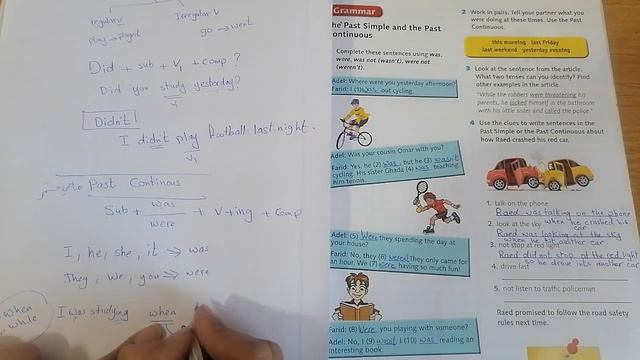 regular V
Irregular V
play → played
go → went
Did + sub + V1 + comp ?
Did you study yesterday?
V1
Didn't
I didn't play football last night.
V1
Past Continous
Sub + was + V+ing + Comp
were
I, he, she, it ⇒ was
They, we, you ⇒ were
when
while
I was studying when
Grammar
he Past Simple and the Past
ontinuous
Complete these sentences using was,
were, was not (wasn't), were not
(weren't).
Adel: Where were you yesterday afternoon?
Farid: I (1) was out cycling.
Adel: Was your cousin Omar with you?
Farid: Yes, he (2) was, but he (3) wasn't
cycling. His sister Ghada (4) was teaching
him tennis.
Adel: (5) Were they spending the day at
your house?
Farid: No, they (6) weren't They only came for
an hour. We (7) were having so much fun!
Farid: (8) Were you playing with someone?
Adel: No, I (9) wasn't I (10) was reading an
interesting book.
2 Work in pairs. Tell your partner what you
were doing at these times. Use the Past
Continuous.
this morning last Friday
last weekend yesterday evening
3 Look at the sentence from the article.
What two tenses can you identify? Find
other examples in the article.
"While the robbers were threatening his
parents, he locked himself in the bathroom
with his little sister and called the police."
4 Use the clues to write sentences in the
Past Simple or the Past Continuous about
how Raed crashed his red car.
1. talk on the phone
Raed was talking on the phone
when he crashed his
car
2. look at the sky
Raed was looking at the sky
when he hit another car.
3. not stop at red light
Raed did not stop at the red light
so he drove into another car
4. drive fast
5. not listen to traffic policeman
Raed promised to follow the road safety
rules next time.